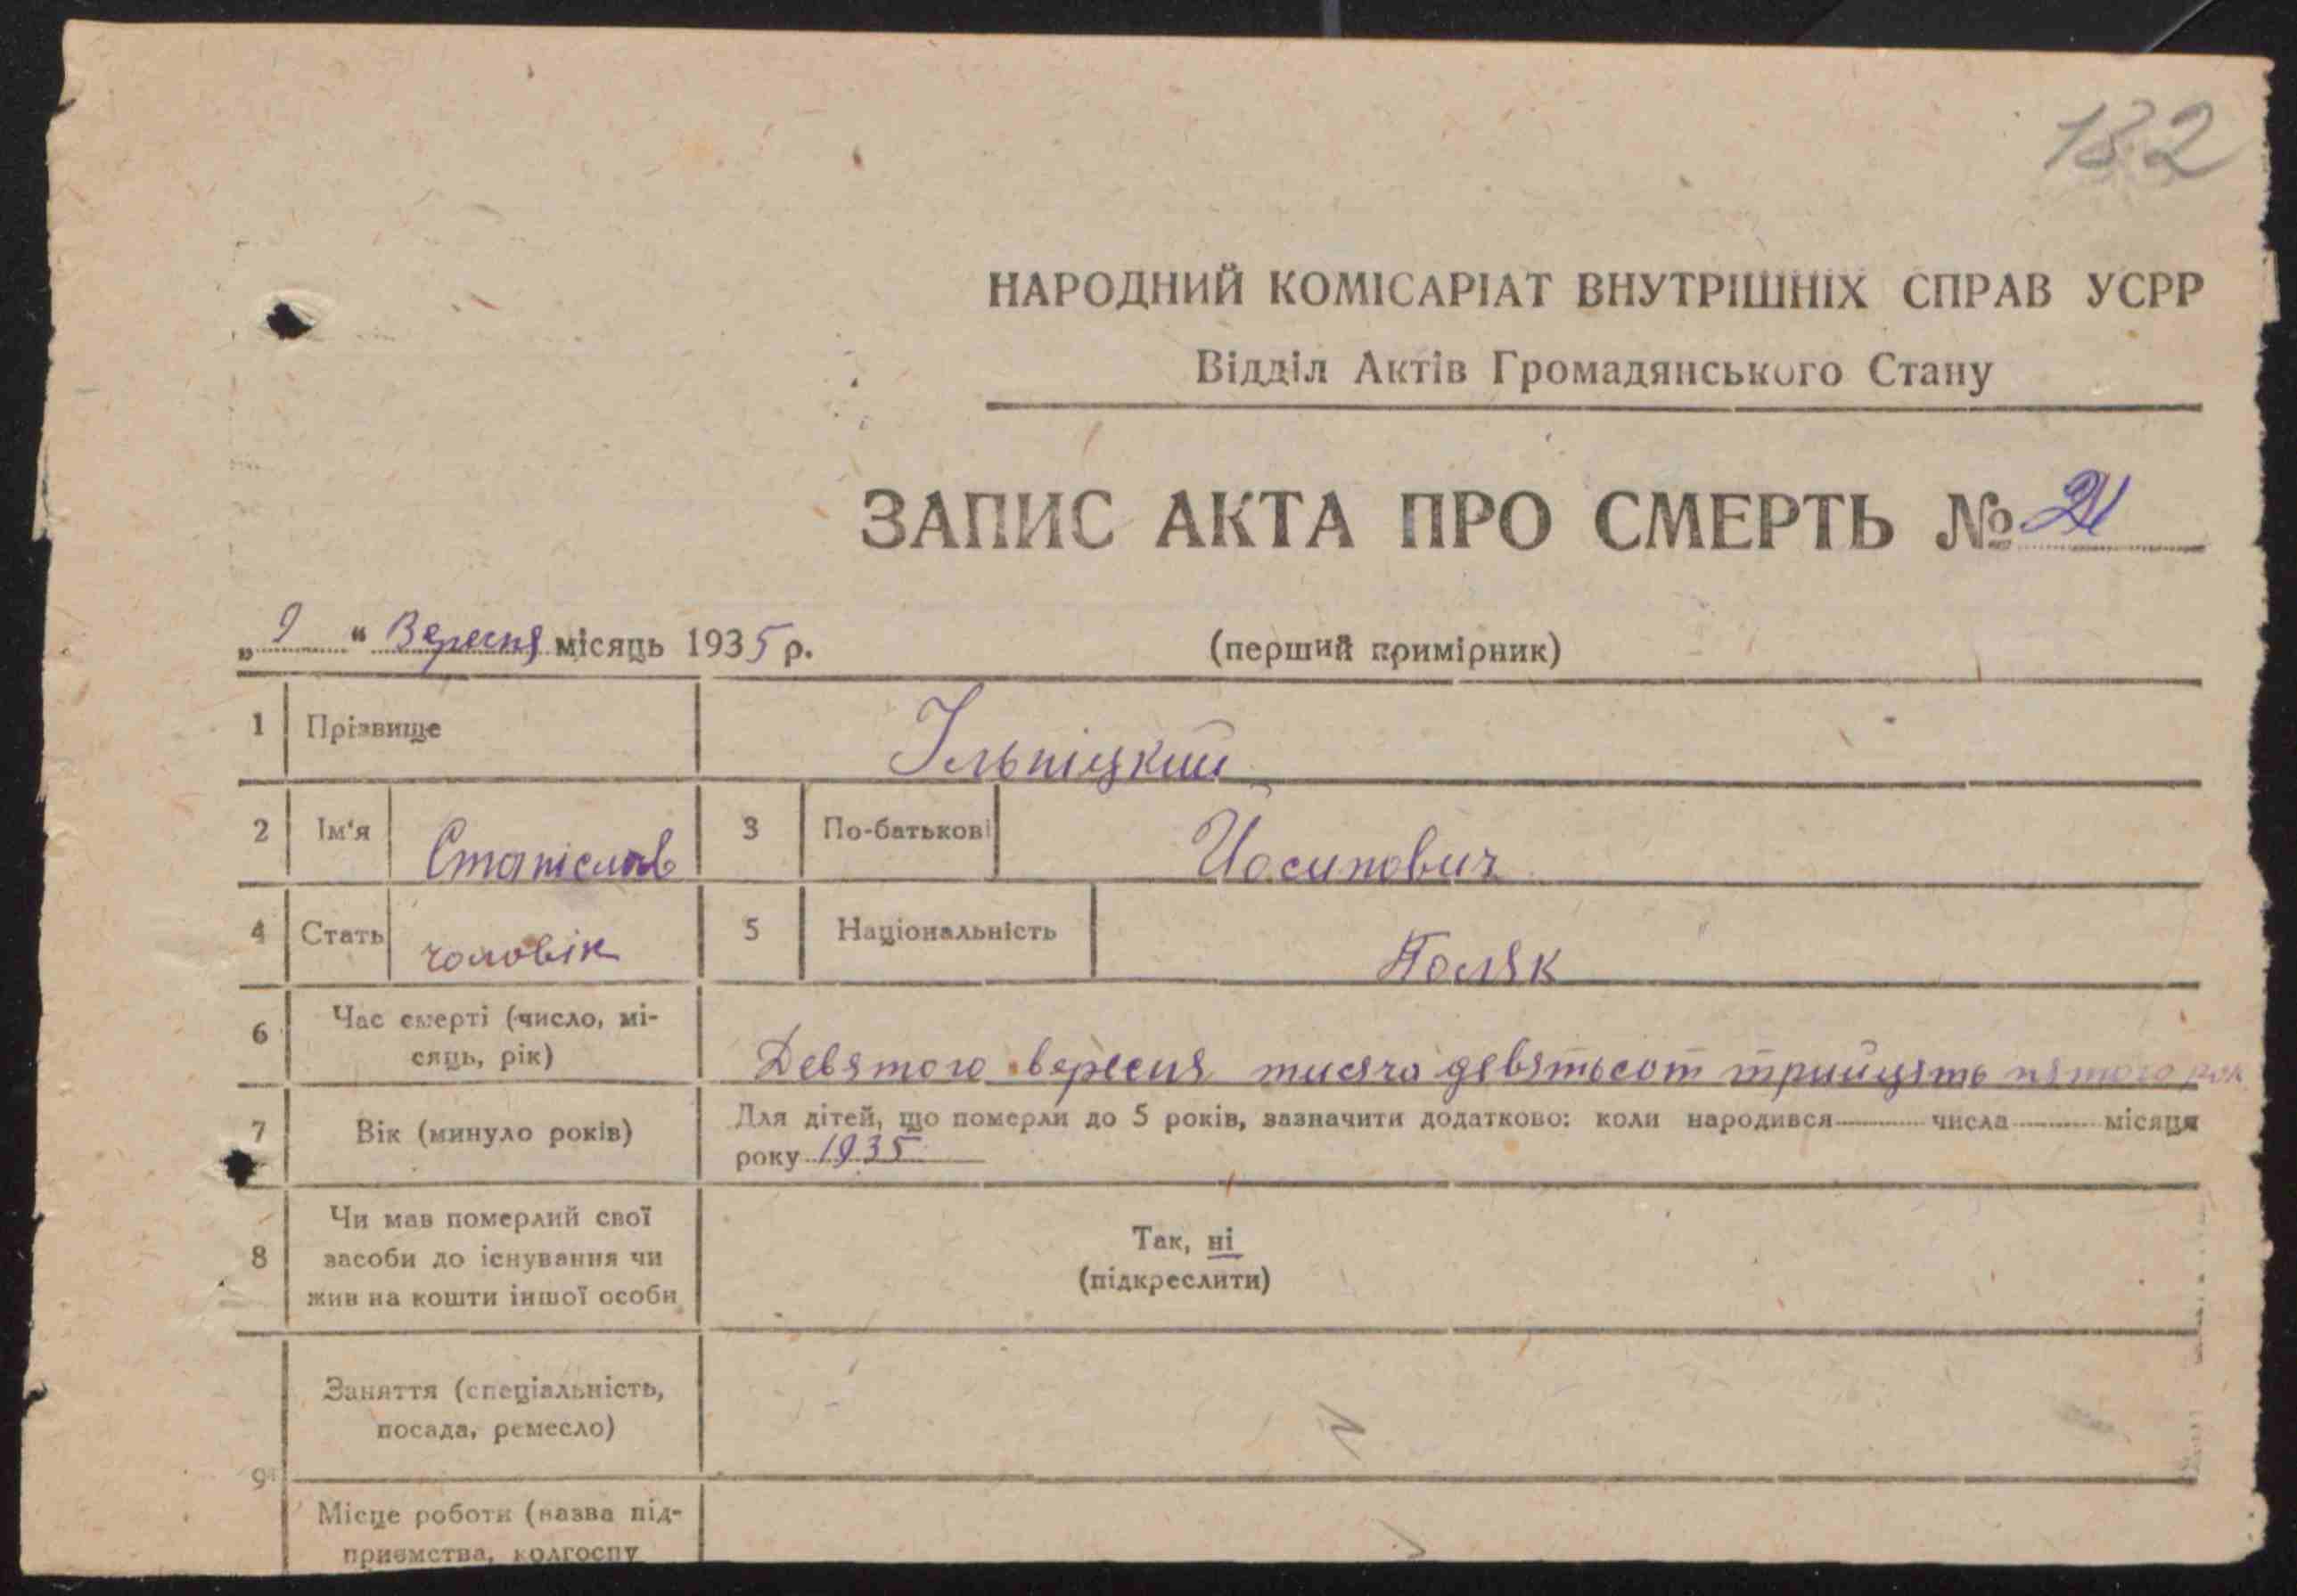 132
НАРОДНИЙ КОМІСАРІАТ ВНУТРІШНІХ СПРАВ УСРР
Відділ Актів Громадянського Стану
ЗАПИС АКТА ПРО СМЕРТЬ № 21
„ 9 “ Вересня місяць 1935 р. (перший примірник)
1 Прізвище Ільніцкий
2 Ім'я Станіслав 3 По-батькові Йосипович
4 Стать чоловік 5 Національність Поляк
6 Час смерті (число, мі-
сяць, рік) Девятого вересня тисяча девятьсот трийцять пятого рок
7 Вік (минуло років) Для дітей, що померли до 5 років, зазначити додатково: коли народився числа місяця
року 1935
8 Чи мав померлий свої
засоби до існування чи
жив на кошти іншої особи
Так, ні
(підкреслити)
9 Заняття (спеціальність,
посада, ремесло)
Місце роботи (назва під-
приємства, колгоспу